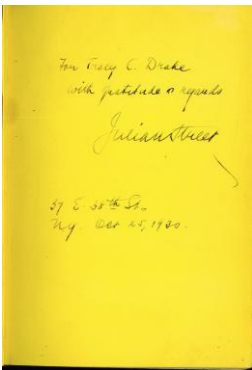 For Tracy C. Drake
with gratitude & regards
Julian Street
37 E. 38th St.
N.Y. Oct 25, 1930.